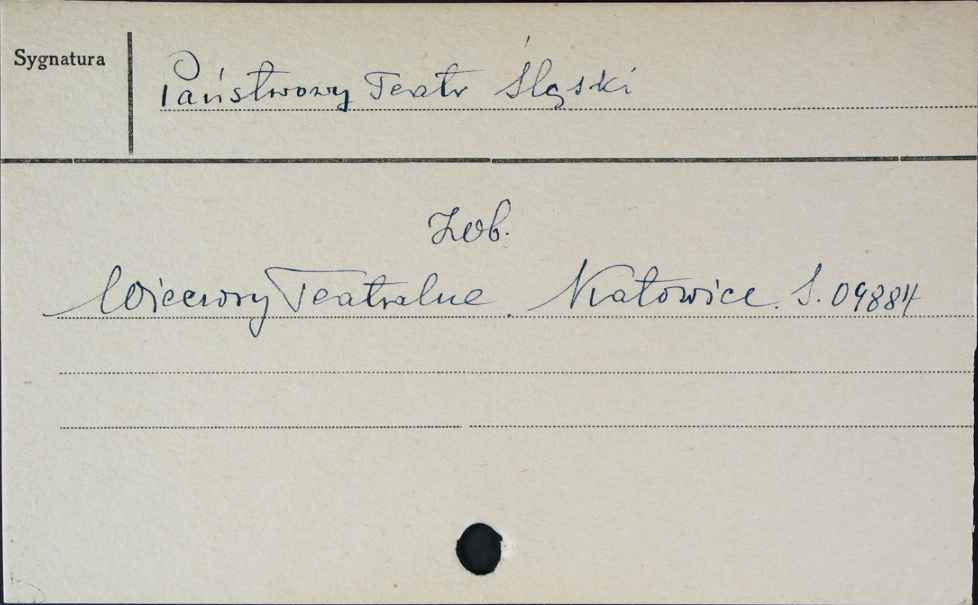 Sygnatura
Państwowy Teatr Śląski
Zob.
Wieczory Teatralne. Katowice. S. 09884